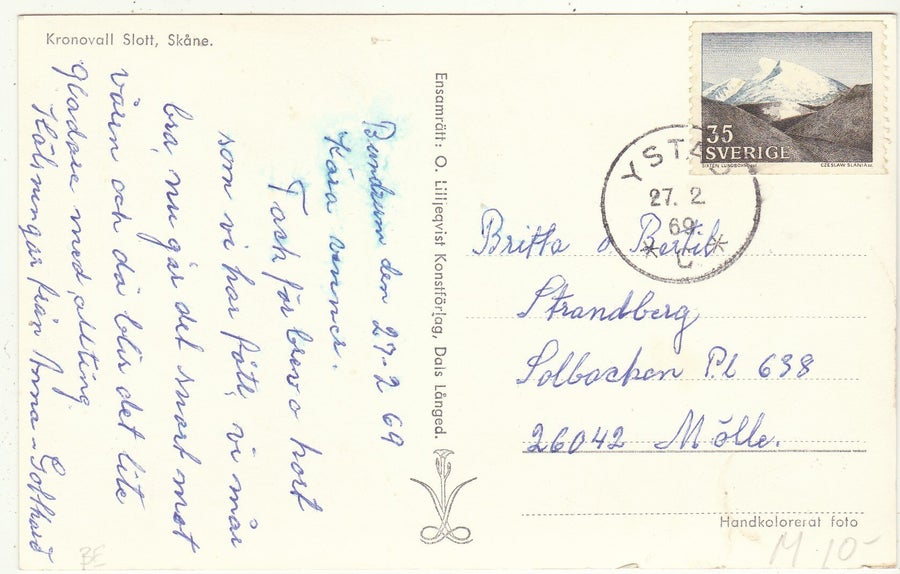 Kronovall Slott, Skåne.
den 27-2 69
Kära vänner.
Tack för brev o kort
som vi har fått, vi mår
bra, nu går det snart mot
våren och då blir det lite
gladare med allting
Hälsningar från Anna - Gotthard
Ensamrätt: O. Lilljeqvist Konstförlag, Dals Långed.
35
SVERIGE
CZESLAW SLANIA sc.
YSTAD
27. 2
69
* L *
Britta o Bertil
Strandberg
Solbacken Pl 638
26042 Mölle.
Handkolorerat foto
M 10-
BE